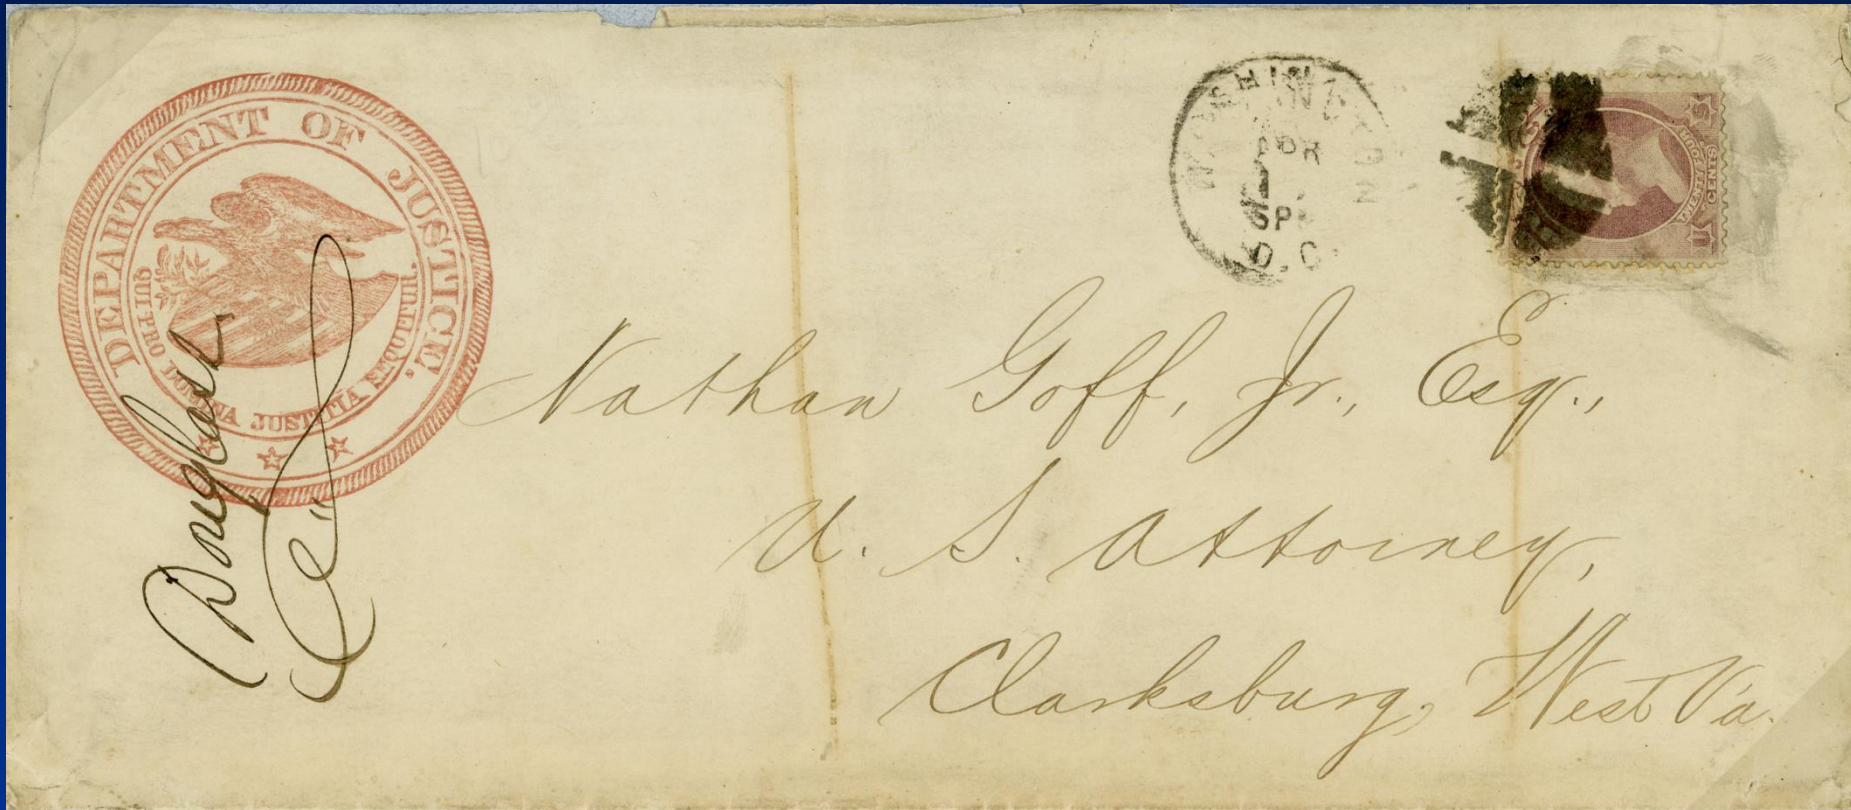 DEPARTMENT OF JUSTICE.
QUI PRO DOMINA JUSTITIA SEQUITUR.
Douglass
WASHINGTON
APR
D.C.
TWENTY FOUR
CENTS
U S
Nathan Goff, Jr., Esq.,
U. S. Attorney,
Clarksburg, West Va.